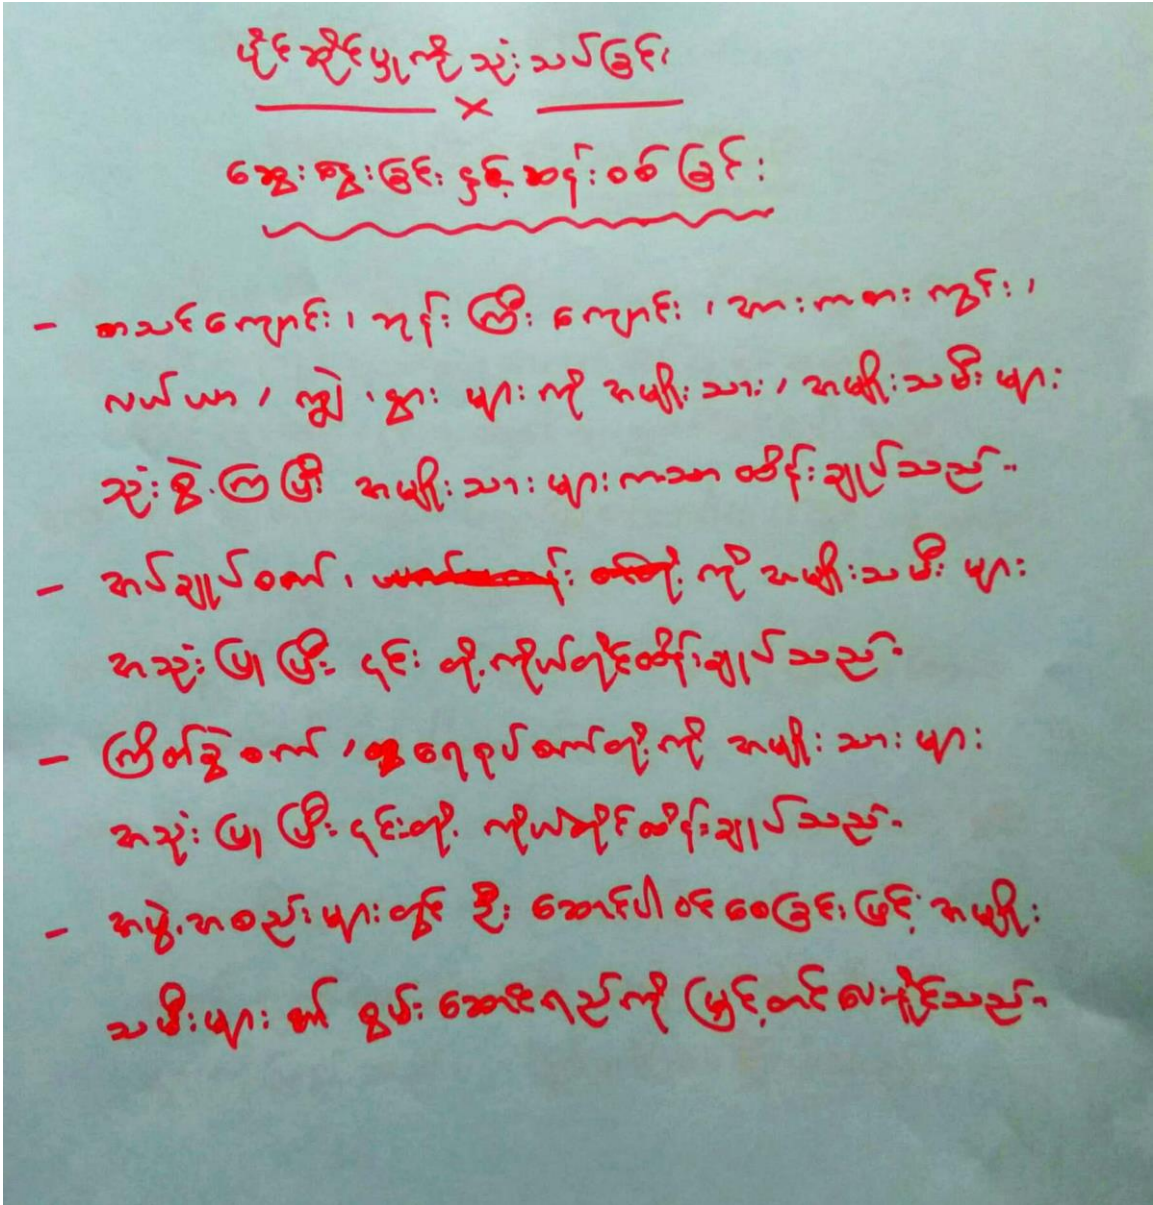 ပိုင်ဆိုင်မှုကို သုံးသပ်ခြင်း
ဆွေးနွေးခြင်းနှင့်ဆန်းစစ်ခြင်း
- စာသင်ကျောင်း၊ ဘုန်းကြီးကျောင်း၊ အားကစားကွင်း၊
လယ်ယာ၊ ကျွဲ၊ နွားများကို အမျိုးသား၊ အမျိုးသမီးများ
သုံးစွဲကြပြီး အမျိုးသားများကသာ ထိန်းချုပ်သည်။
- အပ်ချုပ်စက်၊ ကို အမျိုးသမီးများ
အသုံးပြုပြီး ၎င်းတို့ကိုယ်တိုင်ထိန်းချုပ်သည်။
- ကြိတ်ခွဲစက်၊ ရေစုပ်စက်တို့ကို အမျိုးသားများ
အသုံးပြုပြီး ၎င်းတို့ ကိုယ်တိုင်ထိန်းချုပ်သည်။
- အဖွဲ့အစည်းများတွင် ဦးဆောင်ပါဝင်စေခြင်းဖြင့် အမျိုး
သမီးများ၏ စွမ်းဆောင်ရည်ကို မြှင့်တင်ပေးနိုင်သည်။